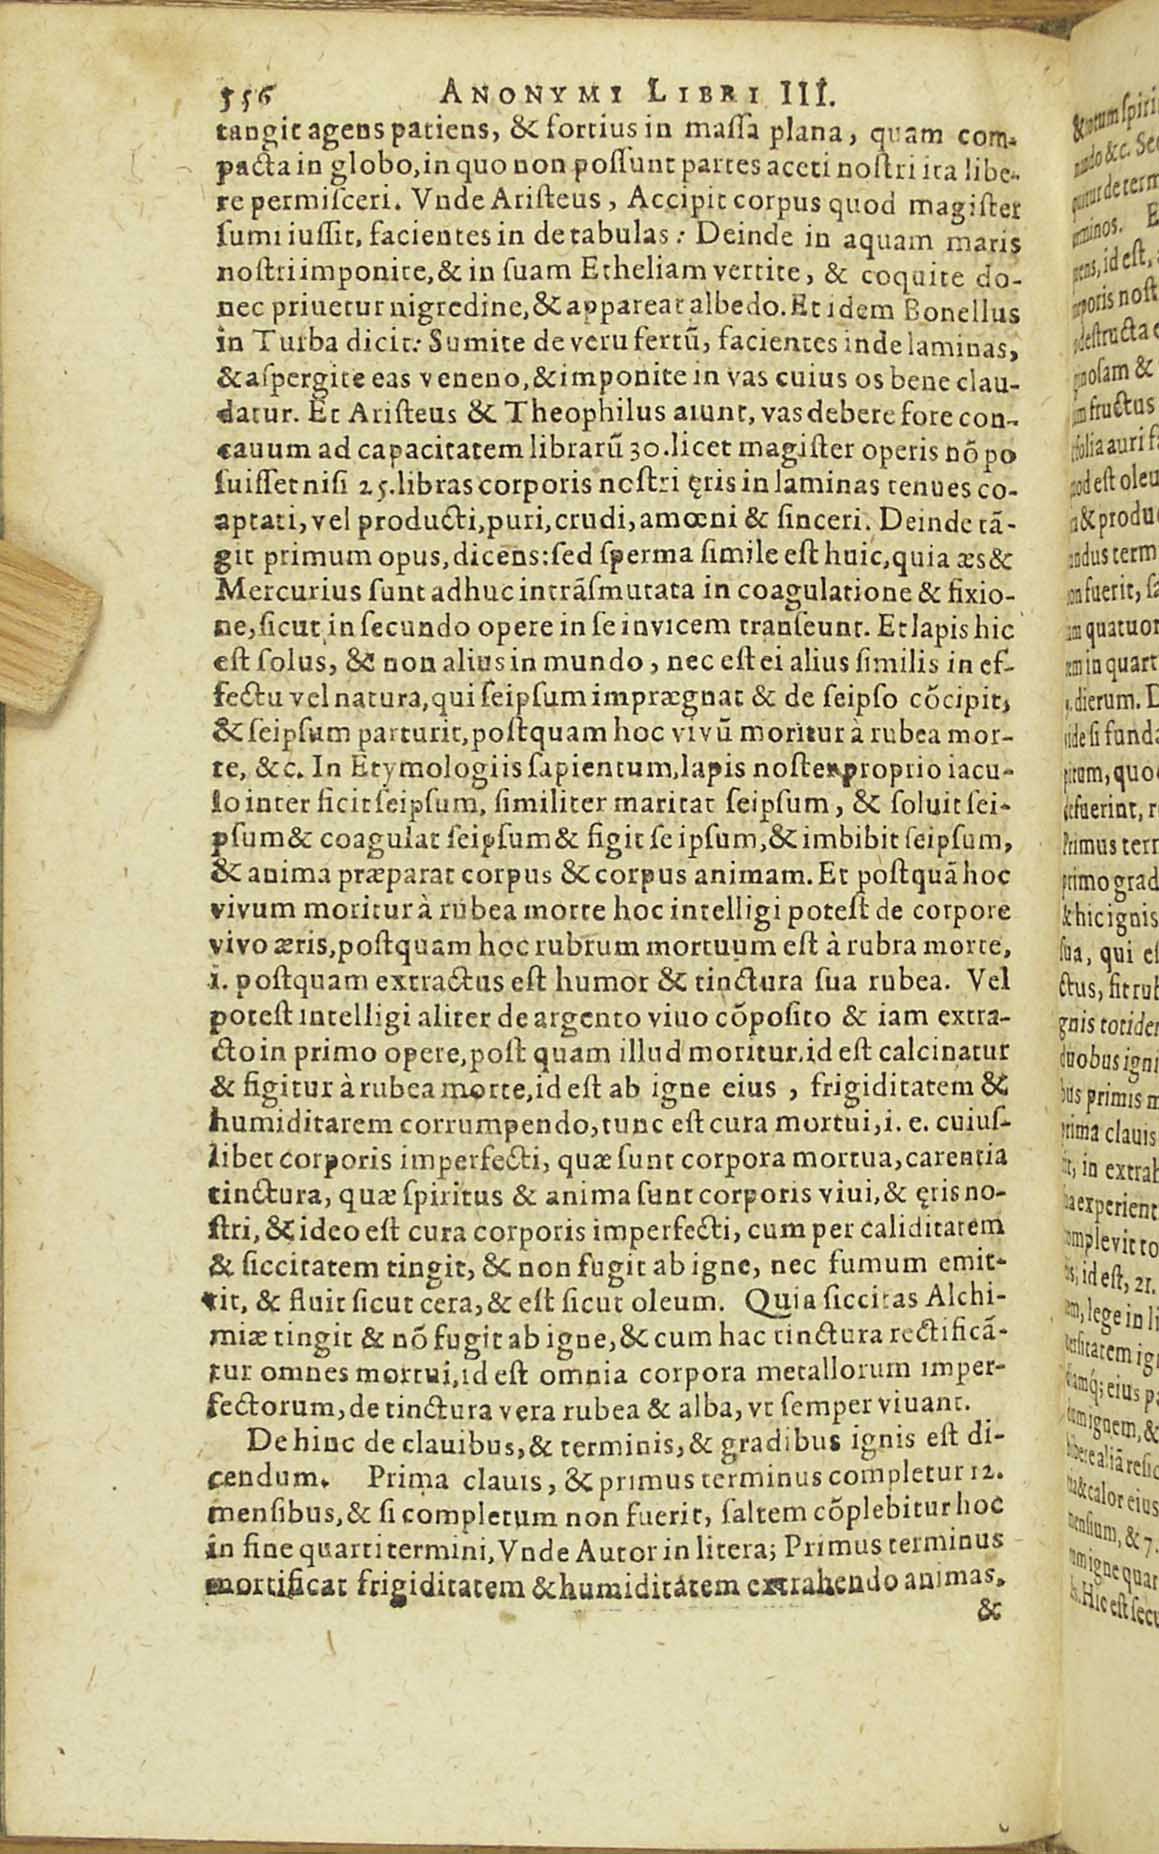 556 ANONYMI LIBRI III.
tangit agens patiens, & fortius in massa plana, quam com-
pacta in globo, in quo non possunt partes aceti nostri ita libe-
re permisceri. Vnde Aristeus, Accipit corpus quod magister
sumi iussit, facientes in de tabulas: Deinde in aquam maris
nostri imponite, & in suam Etheliam vertite, & coquite do-
nec priuetur nigredine, & appareat albedo. Et idem Bonellus
in Turba dicit: Sumite de veru fertũ, facientes inde laminas,
& aspergite eas veneno, & imponite in vas cuius os bene clau-
datur. Et Aristeus & Theophilus aiunt, vas debere fore con-
cauum ad capacitatem librarũ 30. licet magister operis nõ po
suisset nisi 25. libras corporis nostri ęris in laminas tenues co-
aptati, vel producti, puri, crudi, amœni & sinceri. Deinde tã-
git primum opus, dicens: sed sperma simile est huic, quia æs &
Mercurius sunt adhuc intrãsmutata in coagulatione & fixio-
ne, sicut in secundo opere in se invicem transeunt. Et lapis hic
est solus, & non alius in mundo, nec est ei alius similis in ef-
fectu vel natura, qui seipsum imprægnat & de seipso cõcipit,
& seipsum parturit, postquam hoc vivũ moritur à rubea mor-
te, &c. In Etymologiis sapientum, lapis noster proprio iacu-
lo inter ficit seipsum, similiter maritat seipsum, & soluit sei-
psum & coagulat seipsum & figit se ipsum, & imbibit seipsum,
& anima præparat corpus & corpus animam. Et postquã hoc
vivum moritur à rubea morte hoc intelligi potest de corpore
vivo æris, postquam hoc rubrum mortuum est à rubra morte,
i. postquam extractus est humor & tinctura sua rubea. Vel
potest intelligi aliter de argento viuo cõposito & iam extra-
cto in primo opere, post quam illud moritur, id est calcinatur
& figitur à rubea morte, id est ab igne eius, frigiditatem &
humiditatem corrumpendo, tunc est cura mortui, i. e. cuius-
libet corporis imperfecti, quæ sunt corpora mortua, carentia
tinctura, quæ spiritus & anima sunt corporis viui, & ęris no-
stri, & ideo est cura corporis imperfecti, cum per caliditatem
& siccitatem tingit, & non fugit ab igne, nec fumum emit-
tit, & fluit sicut cera, & est sicut oleum. Quia siccitas Alchi-
miæ tingit & nõ fugit ab igne, & cum hac tinctura rectificã-
tur omnes mortui, id est omnia corpora metallorum imper-
fectorum, de tinctura vera rubea & alba, vt semper viuant.
Dehinc de clauibus, & terminis, & gradibus ignis est di-
cendum. Prima clauis, & primus terminus completur 12.
mensibus, & si completum non fuerit, saltem cõplebitur hoc
in fine quarti termini, Vnde Autor in litera; Primus terminus
mortificat frigiditatem & humiditatem extrahendo animas.
&